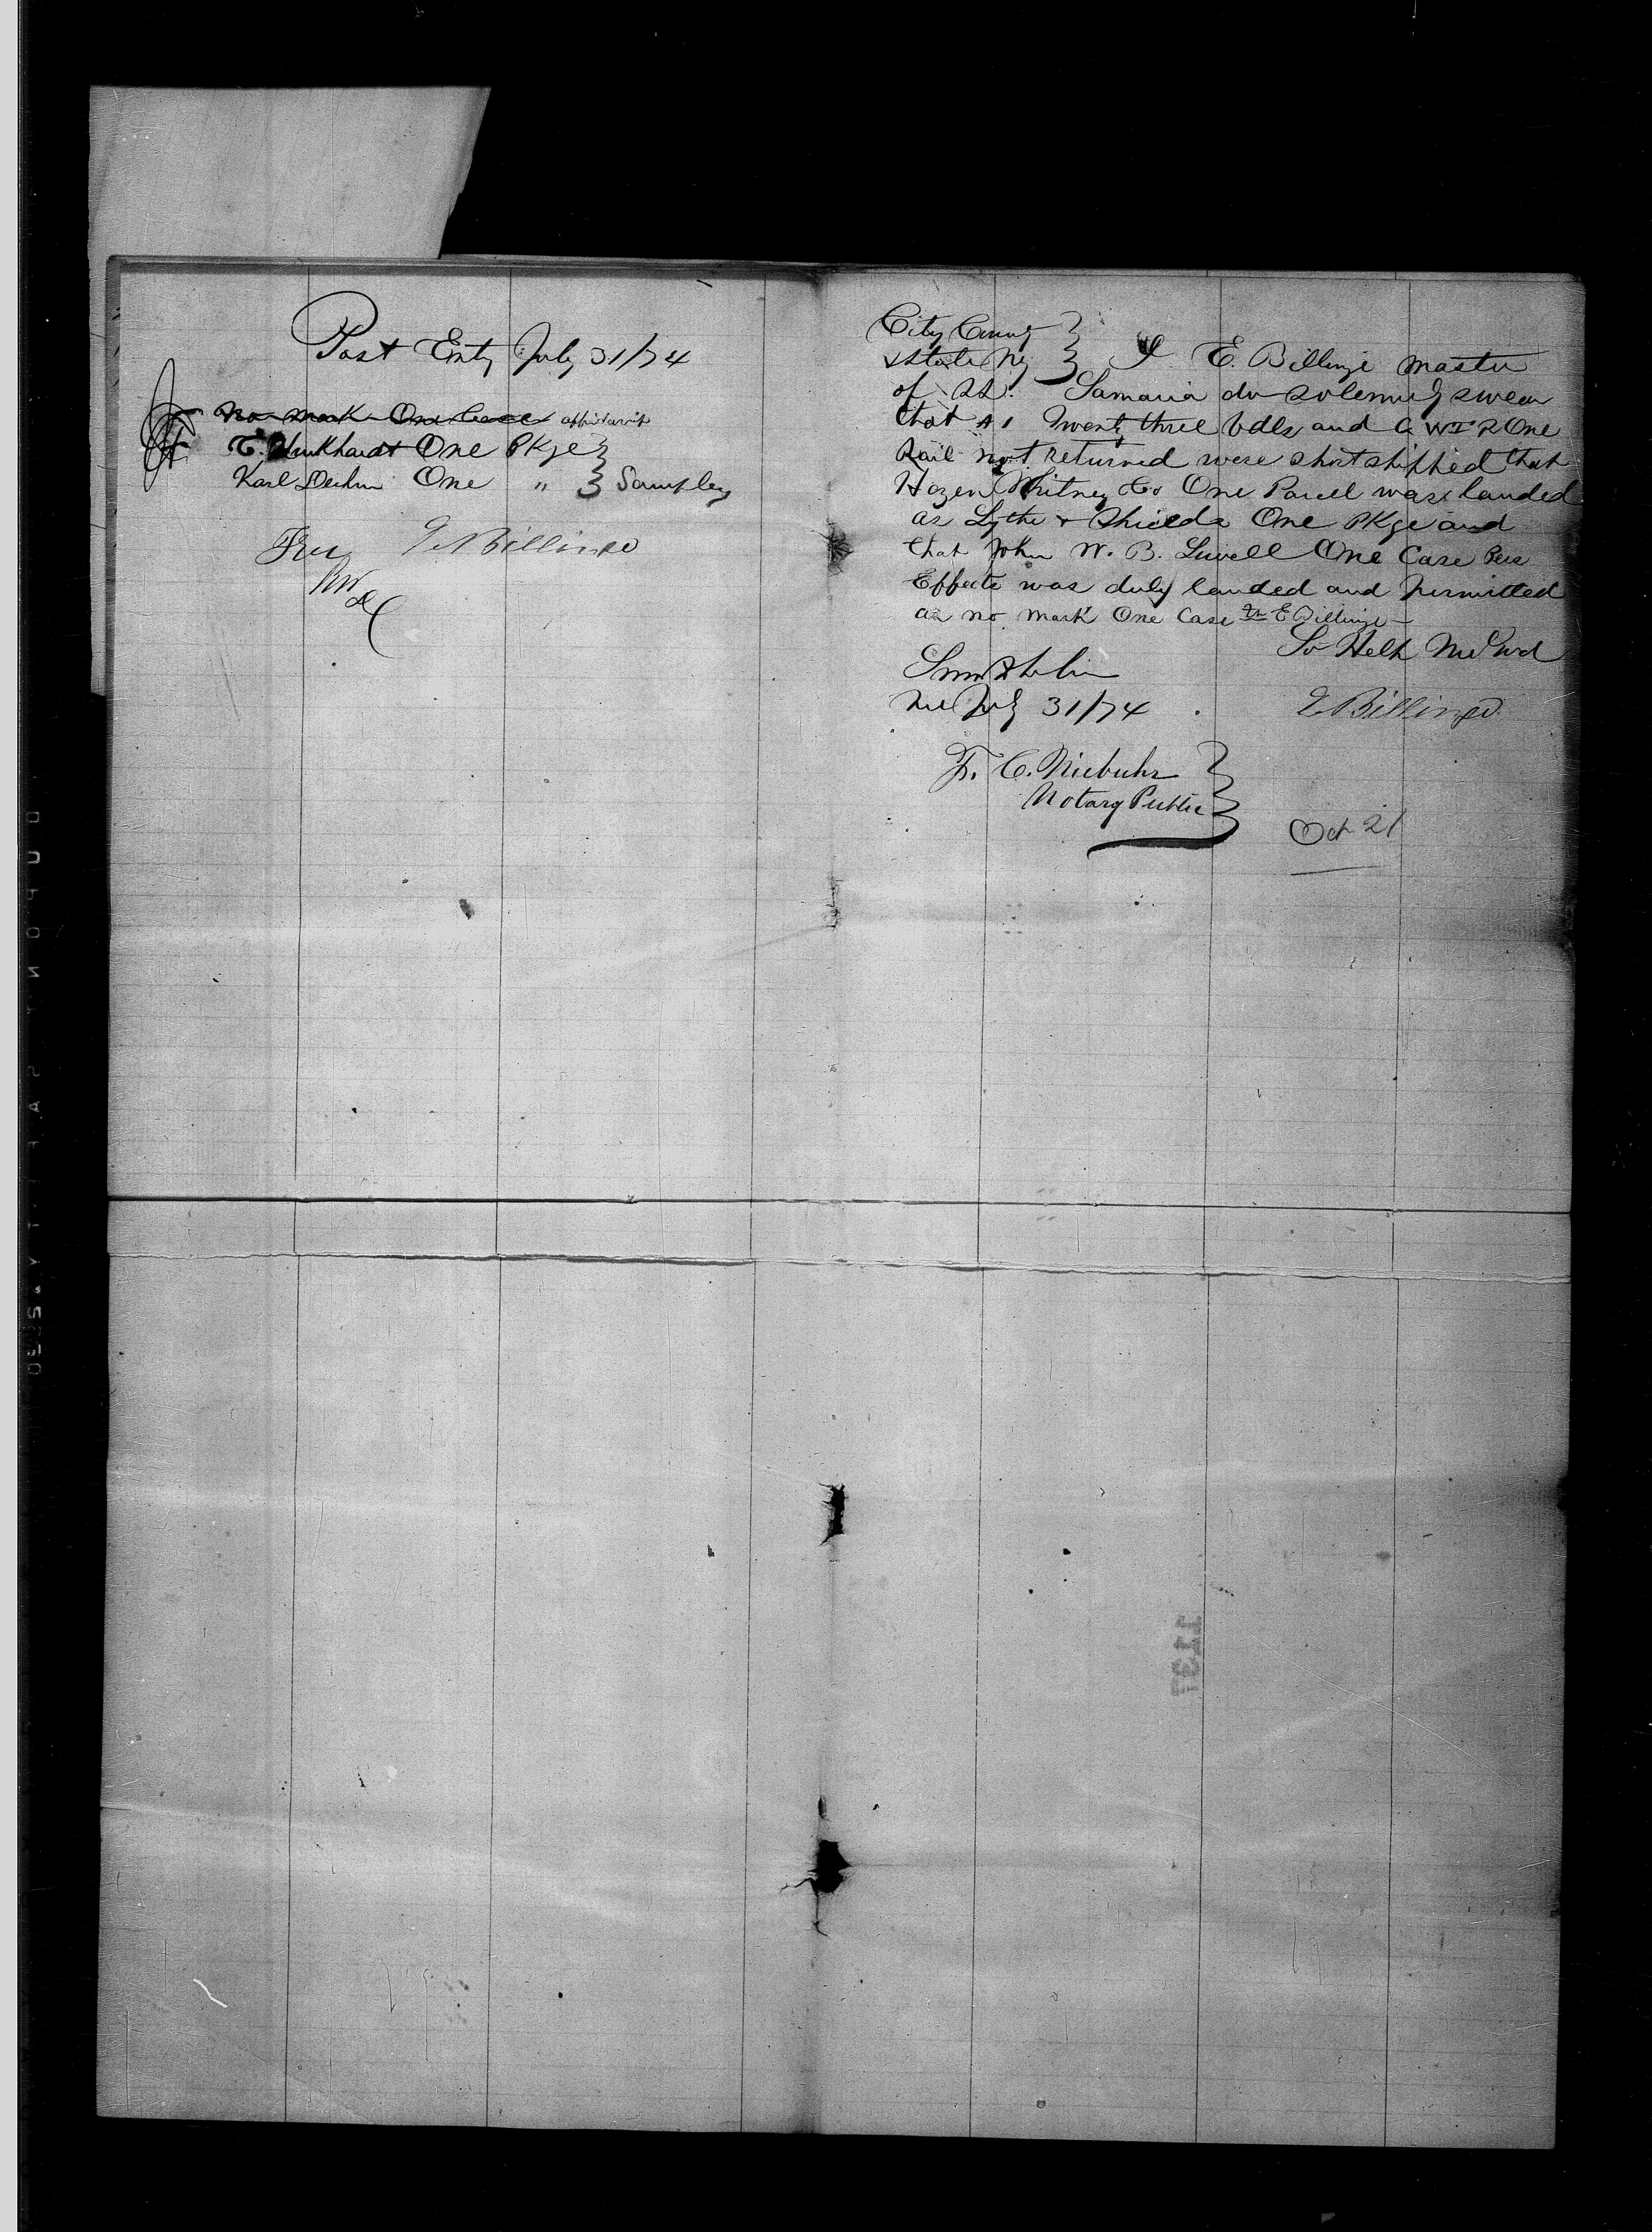 Post Entry July 31/74
No mark One Case affidavit
One PKge
Karl One " Samples
Free E Billinge
City County
& State NY I E. Billinge master
of SS. Samaria do solemnly swear
that A 1 Twenty three bdls and G W I R One
Rail not returned were short shipped that
Hazen Whitney & Co One Parcel was landed
as Lythe & Shields One PKge and
that John W. B. One Case Pers
Effects was duly landed and permitted
as no mark One Case E Billinge
So Help Me God
Sworn to before
me July 31/74 E Billinge
F. C. Niebuhr
Notary Public
Oct 21
1137